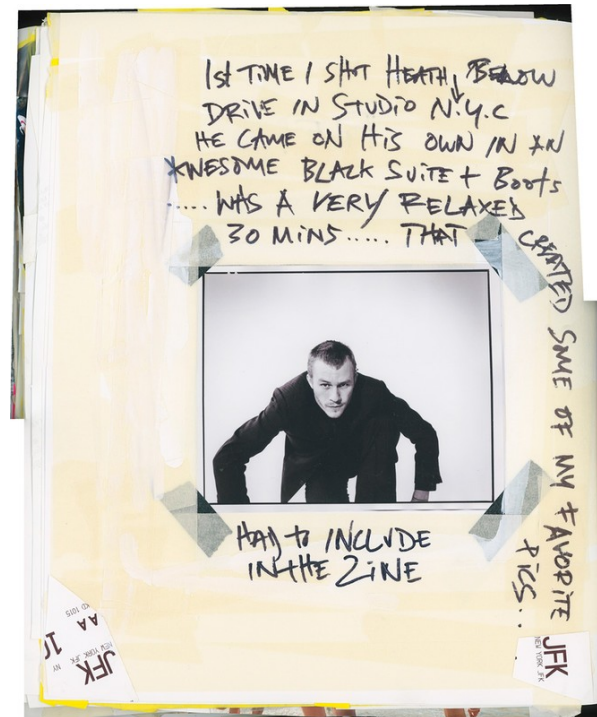 1st TIME I SHOT HEATH, BELOW
DRIVE IN STUDIO N.Y.C
HE CAME ON HIS OWN IN AN
AWESOME BLACK SUITE + BOOTS
..... WAS A VERY RELAXED
30 MINS..... THAT
CREATED SOME OF MY FAVORITE
PICS...
HAD to INCLUDE
IN THE ZINE
KD 1015
AA 10
NEW YORK JFK NY
JFK
JFK
NEW YORK JFK